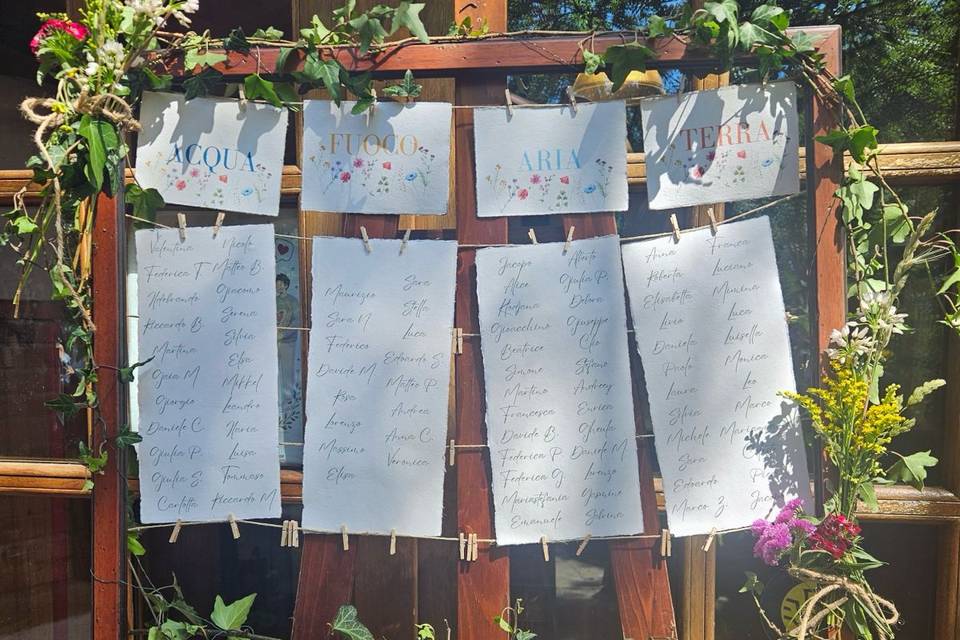 ACQUA
FUOCO
ARIA
TERRA
Valentina Nicola
Federica T. Matteo B.
Ildebrando Giacomo
Riccardo B. Serena
Martina Silvia
Gaia M Elsa
Giorgio Mikkel
Daniele C. Leandro
Giulia P. Ilaria
Giulia S. Luisa
Carlotta Tommaso
Riccardo M
Sara
Maurizio Stella
Sara N. Luca
Federico Edoardo S.
Davide M Matteo P.
Rosa Andrea
Lorenzo Anna C.
Massimo Veronica
Elisa
Jacopo Alberto
Alice Giulia P.
Debora
Gioacchino Giuseppe
Beatrice Clio
Simone Stefano
Martino Andreey
Francesca Enrica
Davide B. Gheula
Federica P. Davide M
Federica G Lorenzo
Mariastefania Yasmine
Emanuele Sabrina
Anna Franca
Roberta Luciano
Elisabetta Mimma
Livio Luca
Daniela Luisella
Paolo Monica
Laura Leo
Silvia Marco
Michele
Sara
Edoardo
Marco Z.